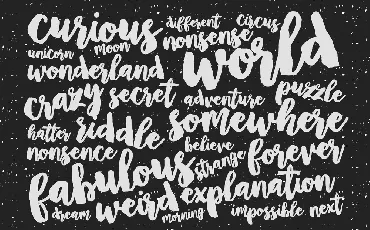 curious different circus
unicorn moon nonsense world
wonderland
crazy secret adventure puzzle
hatter riddle somewhere
nonsense believe
strange forever
fabulous
dream weird explanation
morning impossible next